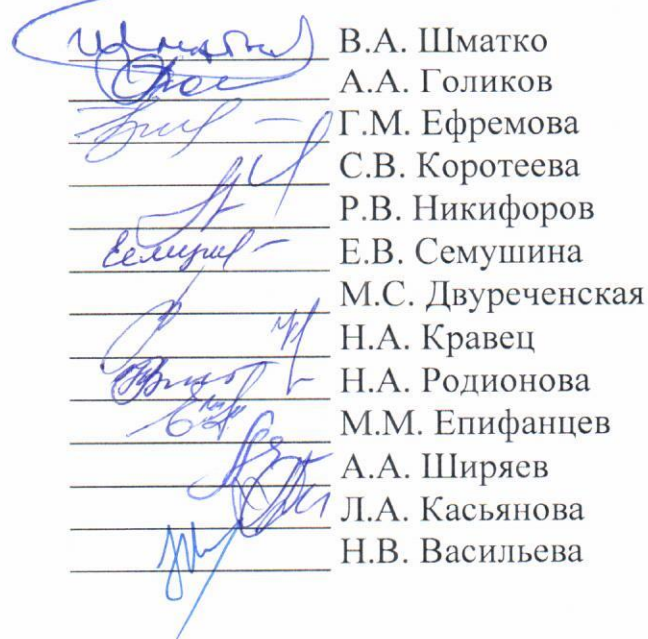 В.А. Шматко
А.А. Голиков
Г.М. Ефремова
С.В. Коротеева
Р.В. Никифоров
Е.В. Семушина
М.С. Двуреченская
Н.А. Кравец
Н.А. Родионова
М.М. Епифанцев
А.А. Ширяев
Л.А. Касьянова
Н.В. Васильева